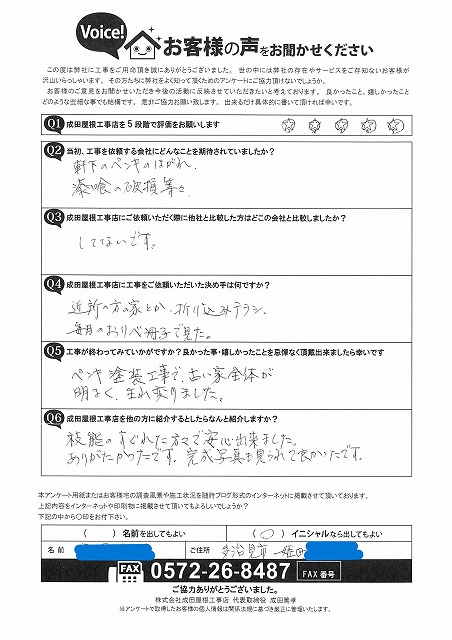 Voice!
お客様の声をお聞かせください
この度は弊社に工事をご用命頂き誠にありがとうございました。世の中には弊社の存在やサービスをご存知ないお客様が
沢山いらっしゃいます。その方たちに弊社をよく知って頂くためのアンケートにご協力頂けないでしょうか。
お客様のご意見をお聞かせいただき今後の活動に反映させていただきたいと考えております。良かったこと、嬉しかったこと
どのような些細な事でも結構です。是非ご協力お願い致します。出来るだけ具体的に書いて頂ければ幸いです。
Q1 成田屋根工事店を5段階で評価をお願いします
Q2 当初、工事を依頼する会社にどんなことを期待されていましたか?
軒下のペンキのはがれ、
漆喰の破損等々
Q3 成田屋根工事店にご依頼いただく際に他社と比較した方はどこの会社と比較しましたか?
してないです。
Q4 成田屋根工事店に工事をご依頼いただいた決め手は何ですか?
近所の方の家とか、折り込みチラシ、
毎月のおりべ冊子で見た。
Q5 工事が終わってみていかがですか?良かった事・嬉しかったことを忌憚なく頂戴出来ましたら幸いです
ペンキ塗装工事で、古い家全体が
明るく、生れ変りました。
Q6 成田屋根工事店を他の方に紹介するとしたらなんと紹介しますか?
技能のすぐれた方々で安心出来ました。
ありがたかったです。完成写真も見られて良かったです。
本アンケート用紙またはお客様宅の調査風景や施工状況を随時ブログ形式のインターネットに掲載させて頂いております。
上記内容をインターネットや印刷物に掲載させて頂いてもよろしいでしょうか?
下記の中から〇印をお付下さい。
( )名前を出してもよい (〇)イニシャルなら出してもよい
名前 ご住所 多治見市
FAX 0572-26-8487 FAX番号
ご協力ありがとうございました。
株式会社成田屋根工事店 代表取締役 成田篤孝
※アンケートで取得したお客様の個人情報は関係法規に基づき厳正に管理いたします。